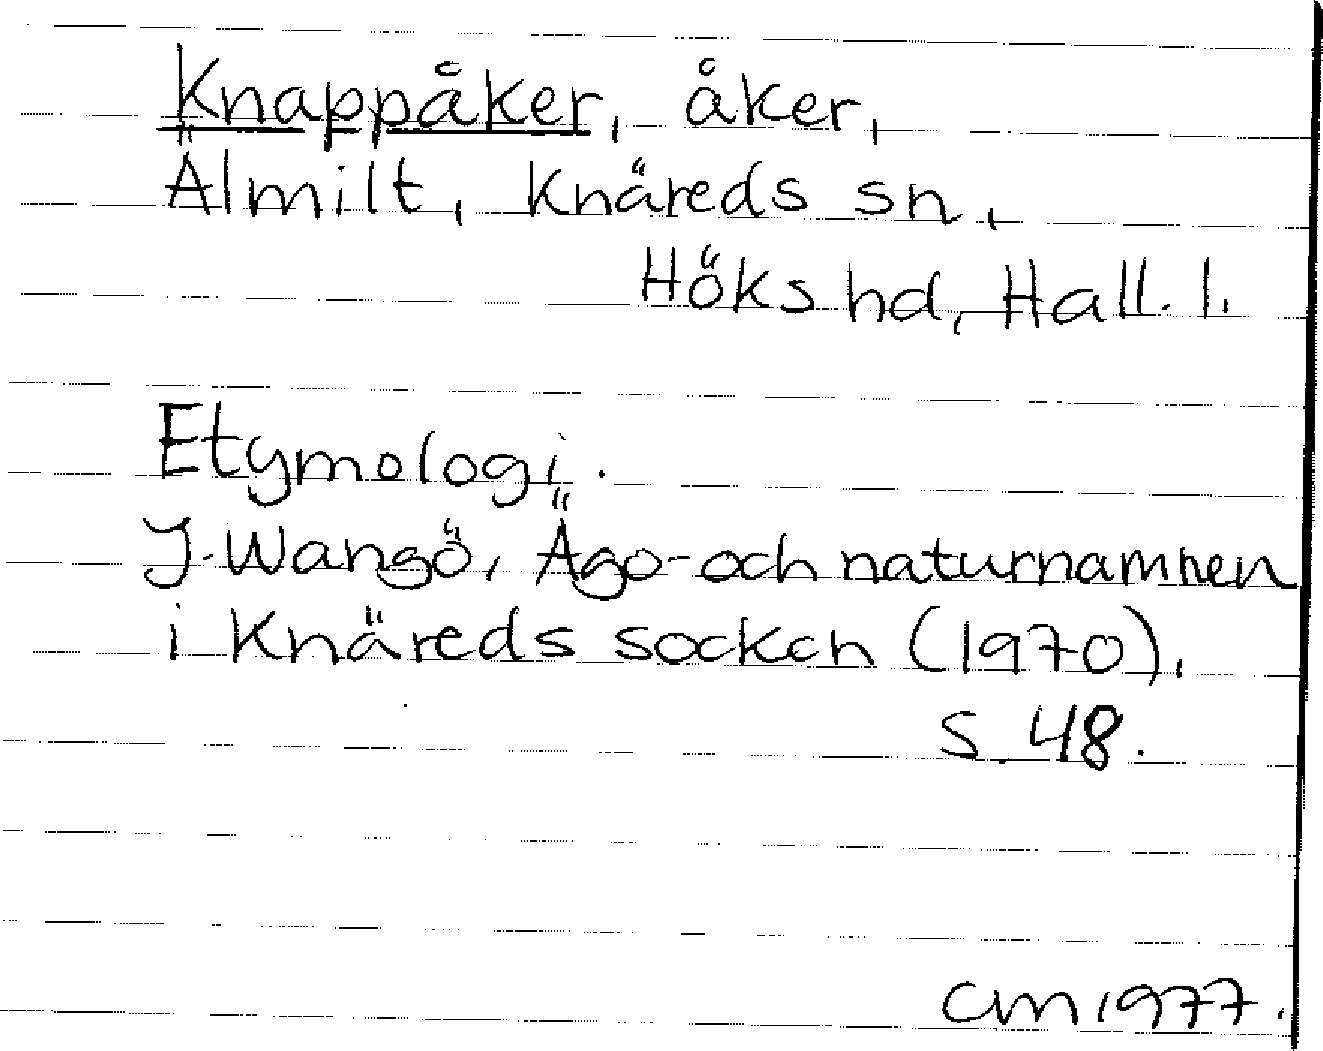 Knappåker, åker,
Älmilt, Knäreds sn,
Höks hd, Hall. l.
Etymologi.
J. Wangö, Ägo- och naturnamnen
i Knäreds socken (1970),
s. 48.
CM 1977.